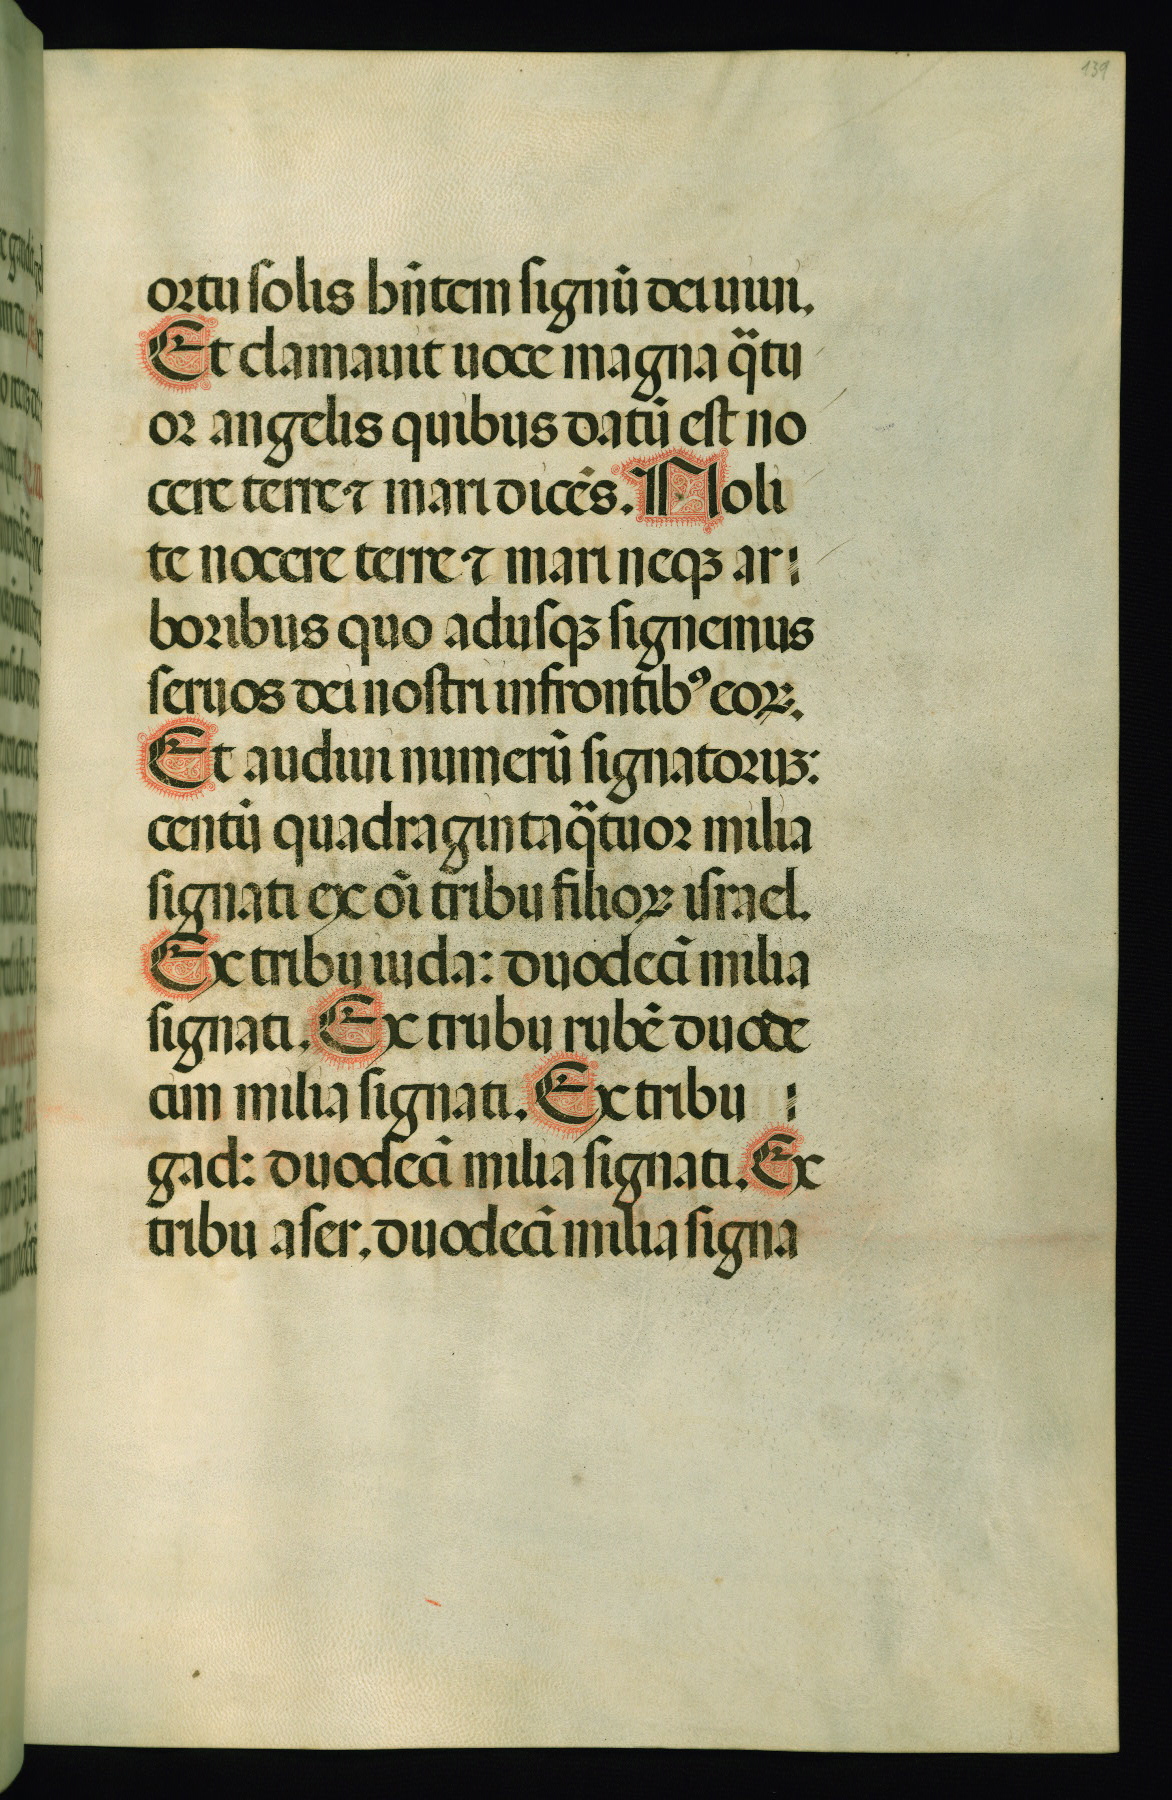 139
ortu solis hñtem signũ dei uiui.
Et clamauit uoce magna q̃tu
or angelis quibus datũ est no
cere terre ⁊ mari dicẽs. Noli
te nocere terre ⁊ mari neqꝫ ar
boribus quo adusqꝫ signemus
seruos dei nostri in frontibꝰ eoꝝ.
Et audiui numerũ signatoruꝫ:
centũ quadraginta q̃tuor milia
signati ex oı̃ tribu filioꝝ israel.
Ex tribu iuda: duodecı̃ milia
signati. Ex trubu rubẽ duode
cim milia signati. Ex tribu
gad: duodecı̃ milia signati. Ex
tribu aser. duodecı̃ milia signa